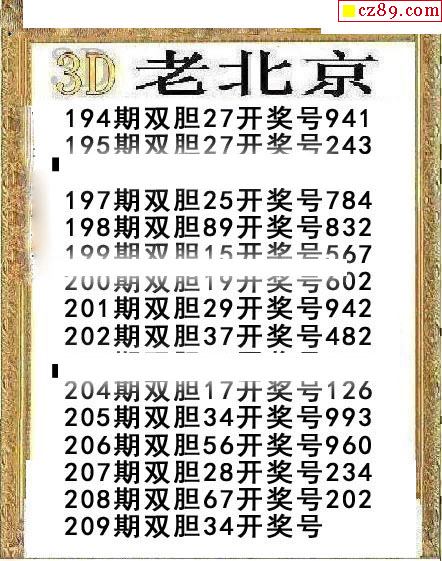 cz89.com
3D 老北京
194期双胆27开奖号941
195期双胆27开奖号243
197期双胆25开奖号784
198期双胆89开奖号832
199期双胆15开奖号567
200期双胆19开奖号602
201期双胆29开奖号942
202期双胆37开奖号482
204期双胆17开奖号126
205期双胆34开奖号993
206期双胆56开奖号960
207期双胆28开奖号234
208期双胆67开奖号202
209期双胆34开奖号